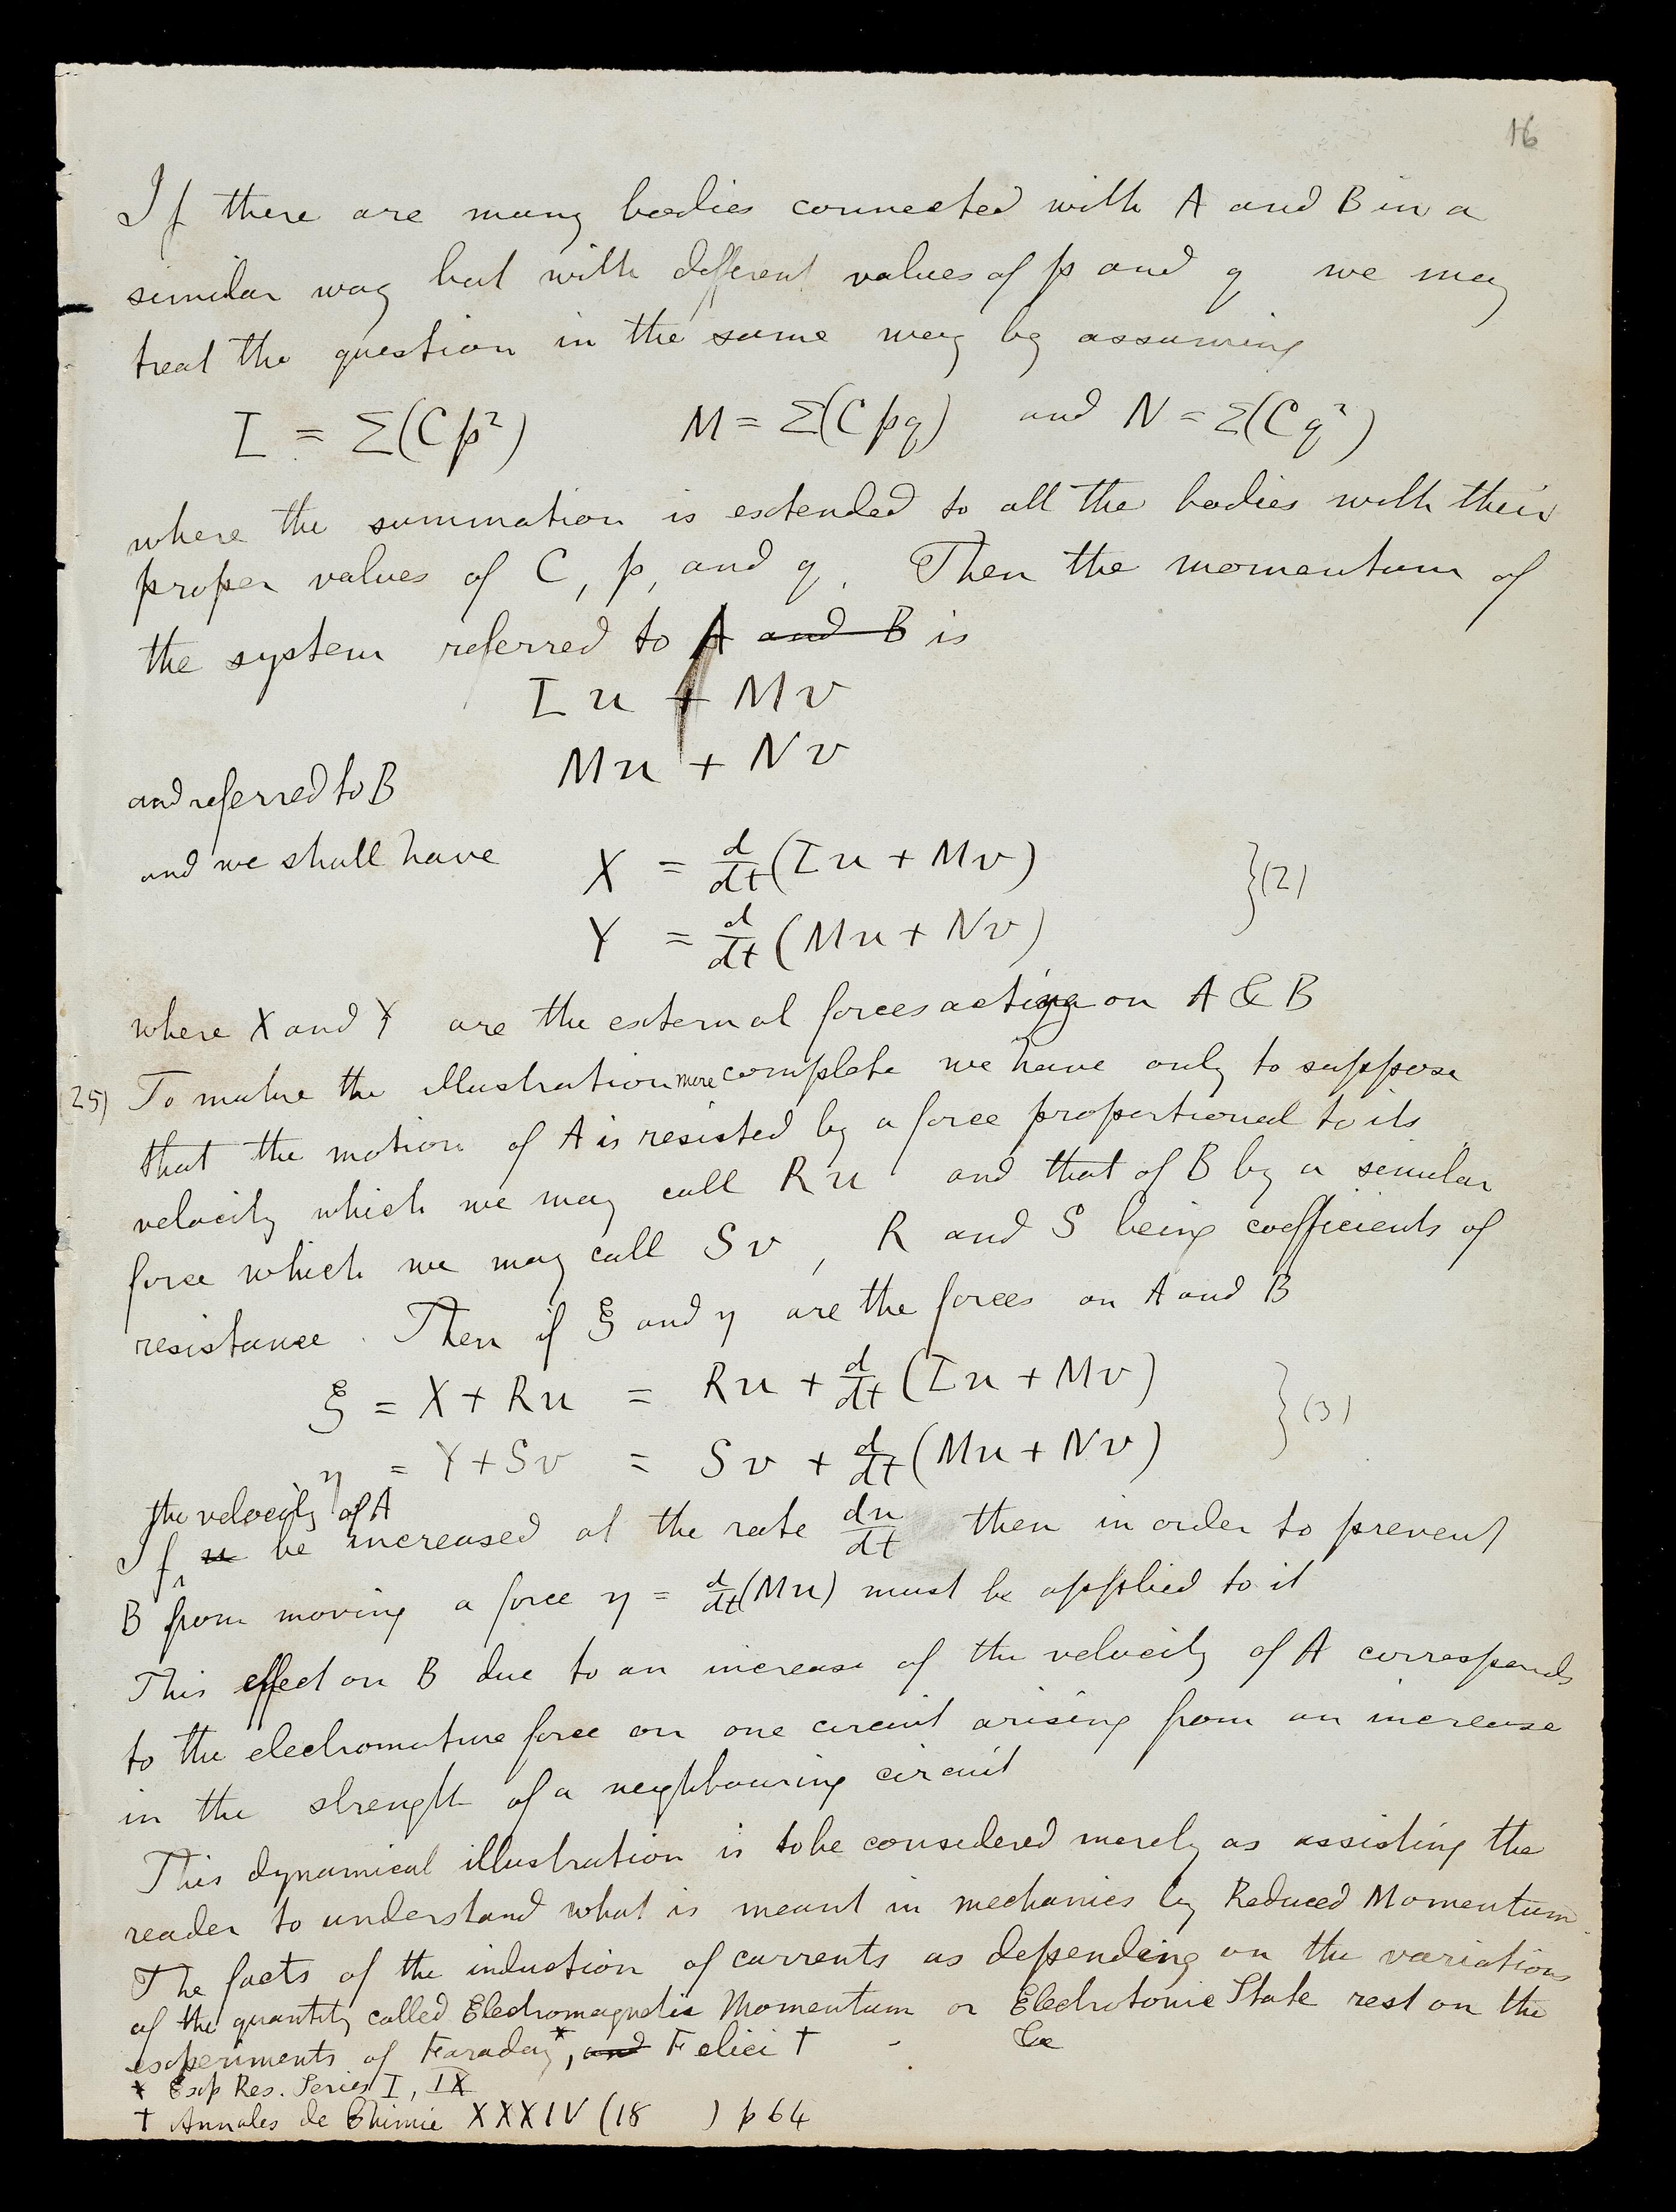 16
If there are many bodies connected with A and B in a
similar way but with different values of p and q we may
treat the question in the same way by assuming
L = Σ(Cp²) M = Σ(Cpq) and N = Σ(Cq²)
where the summation is extended to all the bodies with their
proper values of C, p, and q. Then the momentum of
the system referred to A and B is
Lu + Mv
and referred to B Mu + Nv
and we shall have X = d/dt (Lu + Mv) } (2)
Y = d/dt (Mu + Nv)
where X and Y are the external forces acting on A & B
25) To make the illustration more complete we have only to suppose
that the motion of A is resisted by a force proportional to its
velocity which we may call Ru and that of B by a similar
force which we may call Sv, R and S being coefficients of
resistance. Then if ξ and η are the forces on A and B
ξ = X + Ru = Ru + d/dt (Lu + Mv) } (3)
η = Y + Sv = Sv + d/dt (Mu + Nv)
the velocity of A
If u be increased at the rate du/dt then in order to prevent
B from moving a force η = d/dt (Mu) must be applied to it
This effect on B due to an increase of the velocity of A corresponds
to the electromotive force on one circuit arising from an increase
in the strength of a neighbouring circuit
This dynamical illustration is to be considered merely as assisting the
reader to understand what is meant in mechanics by Reduced Momentum
The facts of the induction of currents as depending on the variations
of the quantity called Electromagnetic Momentum or Electrotonic State rest on the
experiments of Faraday*, and Felici † &c
* Exp Res. Series I, IX
† Annales de Chimie XXXIV (18 ) p 64